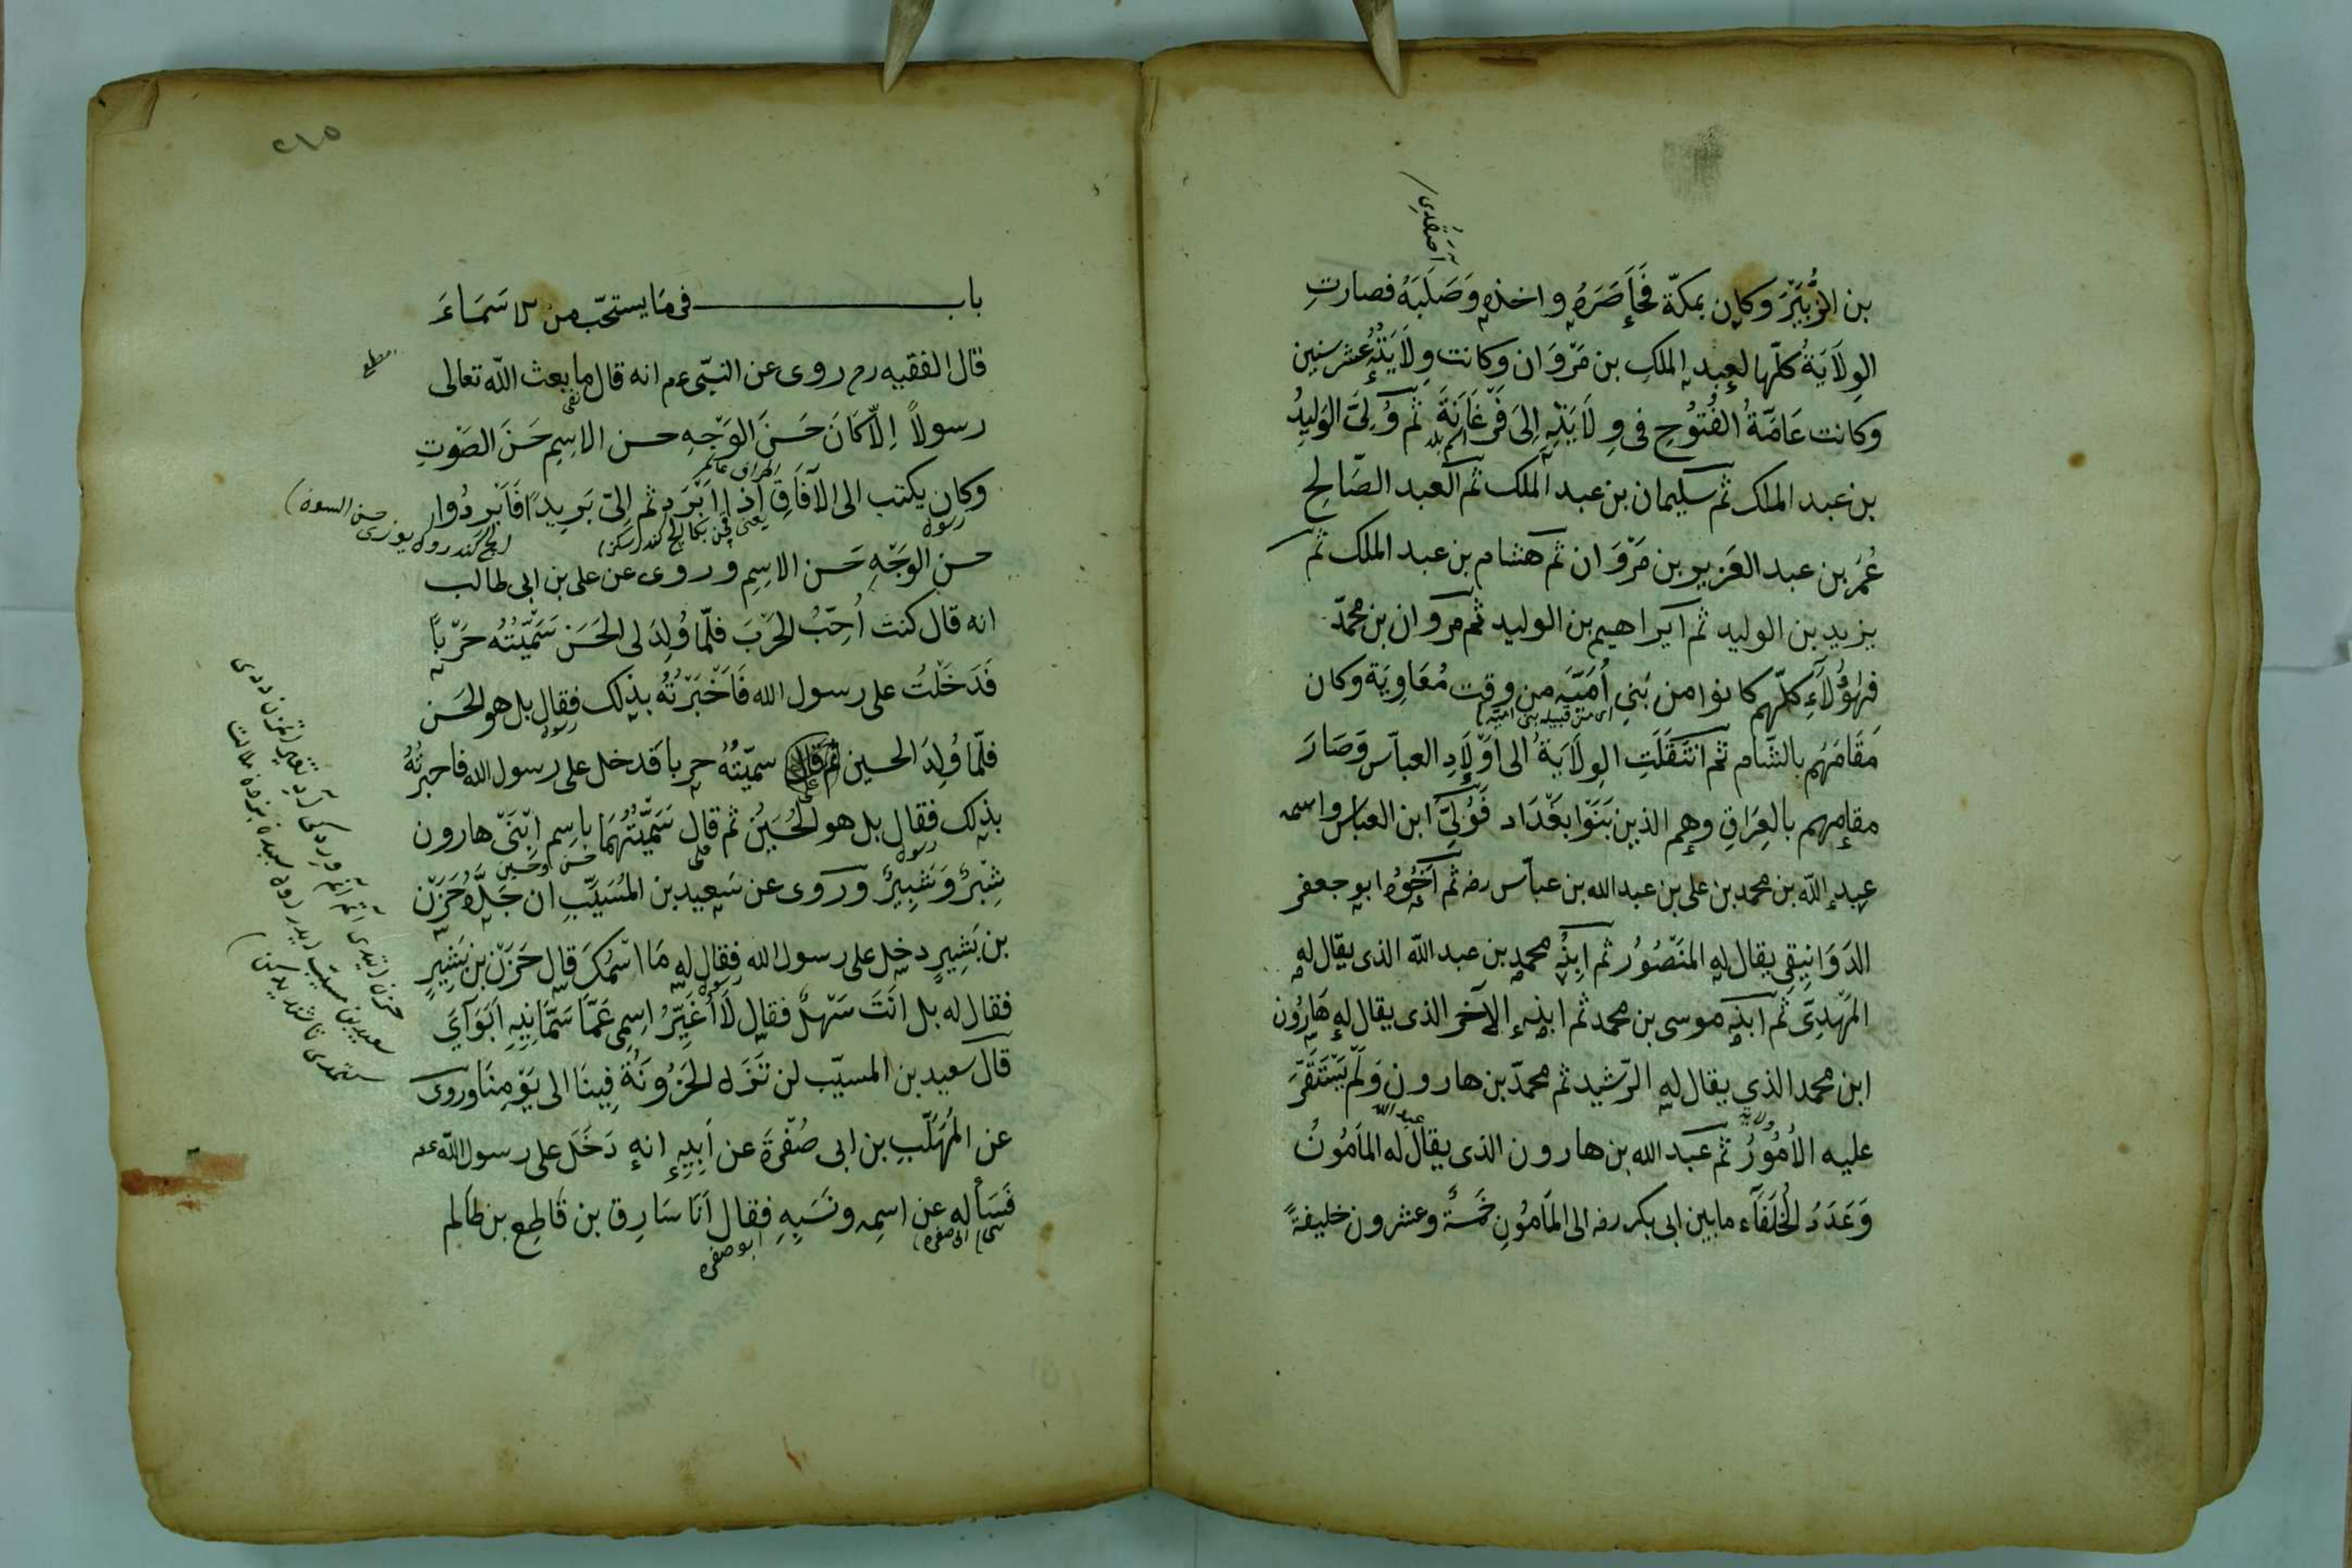 بن الزُّبَيْرَ وكان بمكّة فَحَاصَرَهُ واخذه وَصَلَبَهُ فصارتِ
الوِلَايَةُ كلّها لعبد الملكِ بن مَرْوَان وكانت وِلَايَتُهُ عشر سنين
وكانت عَامَّةُ الفُتُوُحِ فى وِلَايَتِهِ اِلىَ فَرْغَانَةَ ثم وُلِىَّ الوَلِيدُ
اسم بلد
بن عبد الملك ثم سليمان بن عبد الملك ثم العبد الصَّالِحِ
عُمَرُ بن عبد العَزِيزِ بن مَرْوَان ثم هشام بن عبد الملك ثم
يزيد بن الوليد ثم ابراهيم بن الوليد ثم مروان بن محمّد
فهٰؤُلَآءِ كلّهم كانوا من بَنِى اُمَيَّه من وقت مُعَاوِيَة وكان
اى من قبيله بنى اميّه
مَقَامَهُم بالشّام ثم انْتَقَلَتِ الوِلَايَةُ الى اَوْلَادِ العبّاس وَصَارَ
مقامهم بالعِرَاقِ وهم الذين بَنَوْا بَغْدَاد فَوُلِىَّ ابن العباس واسمه
عبد الله بن محمد بن على بن عبد الله بن عبّاس رضه ثم اَخُوُهُ ابو جعفر
الدَوَانِيقِى يقال له المَنْصُوُرُ ثم ابنُه محمد بن عبد الله الذى يقال له
المَهْدِىّ ثم ابنه موسى بن محمد ثم ابنه الآخر الذى يقال له هَارُون
ابن محمد الذى يقال له الرّشيد ثم محمدّ بن هارون وَلَمْ يَسْتَقَرَّ
عليه الاُمُوُرُ ثم عبد الله بن هارون الذى يقال له المَاْمُونُ
عبد الله
وَعَدَدُ الخُلَفَآء ما بين ابى بكر رضه الى المَاْمُونِ خَمْسَةٌ وعشرون خليفةً
٢١٥
باب فى مَا يستحّب من الاسَمَاءَ
قال الفقيه رح روى عن النبّى عم انه قال ما بعث الله تعالى
رسولاً اِلّا كَانَ حَسَنَ الوَجْهِ حسن الاسِمِ حَسَنَ الصَوْتِ
اطراف عالم
وكان يكتب الى الآفَاقِ اذا اَبْرَدتم اِلىّ بَرِيدًا فَاَبْرِدُوا
رسول
حسن الوَجْهِ حَسَن الاسِمِ وروى عن على بن ابى طالب
انه قال كنت اُحِبُّ الحَرْبَ فلمّا وُلِدَ لى الحَسَن سَمَّيْتُهُ حَرْبًا
فَدَخَلْتُ على رسول الله فَاَخْبَرْتُهُ بذلك فقال بل هو الحَسَن
رسول
فلمّا وُلِدَ الحسين ثم قال سمّيْتُهُ حربا فدخل على رسول الله فاخبرتُهُ
بذلك فقال بل هو الحُسَيْن ثم قال سَمَّيْتُهُمَا باِسِم ابْنَىْ هارون
رسول
حسن وحسين
شبْرٌ وَشَبِيرٌ وروى عن سَعِيد بن المُسَيَّبِ ان جَدَّهُ حَزَن
بن بَشِيرٍ دخل على رسول الله فقال له مَا اسْمُكَ قال حَزَن بن بَشِيرٍ
رسول
فقال له بل انَتَ سَهْلٌ فقال لَا اُغَيِّرُ اسِمِى عَمَّا سَمَّانِيِهِ اَبَوَاىَ
قال سعيد بن المسيّب لن تَزَل الحَزُونَةُ فِينَا الى يَوْمِنَا وروى
عن المُهَلَّبِ بن ابى صُفْرَةَ عن اَبِيِهِ انه دَخَلَ على رسول الله عم
فَسَأله عن اسِمِه ونَسَبِهِ فقال اَنَا سَارِق بن قَاطِع بن ظَالم
ابو صفره